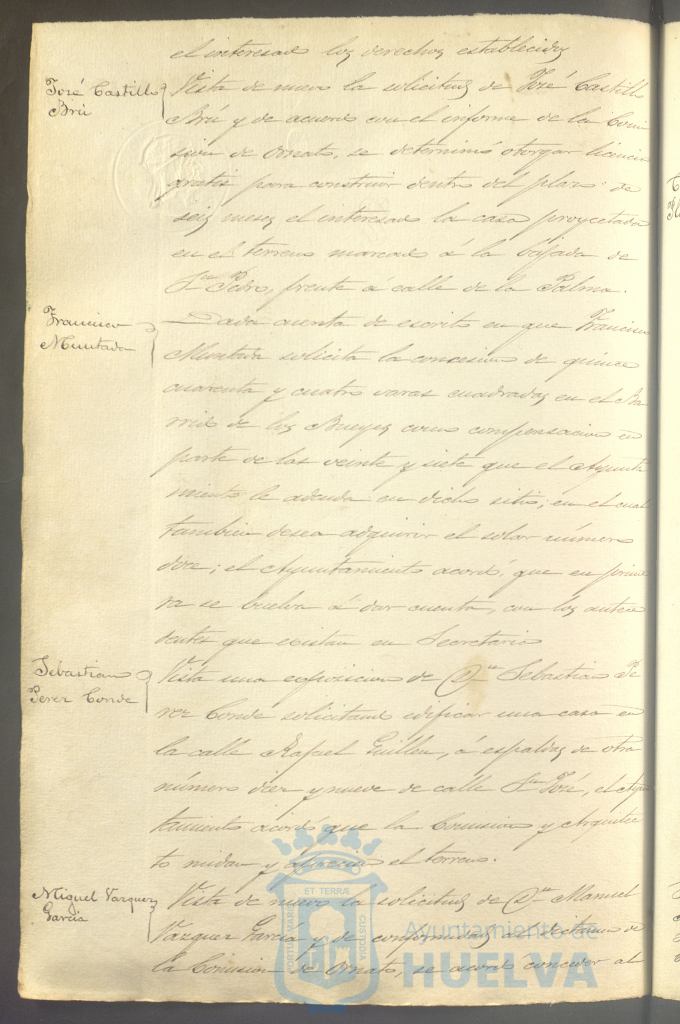 el interesado los derechos establecidos
José Castillo
Brú
Vista de nuevo la solicitud de José Castillo
Brú y de acuerdo con el informe de la Comi
sion de Ornato, se determinó otorgar licencia
gratis para construir dentro del plazo de
seis meses el interesado la casa proyectada
en el terreno marcado á la bajada de
Sn Pedro, frente á calle de la Palma.
Francisco
Muntada
Dada cuenta de escrito en que Francisco
Muntada solicita la concesion de quince
cuarenta y cuatro varas cuadradas en el Ba
rrio de los Bueyes como compensacion en
parte de las veinte y siete que el Ayunta
miento le adeuda en dicho sitio; en el cual
tambien desea adquirir el solar número
doce; el Ayuntamiento acordó, que en prime
ra se vuelva á dar cuenta, con los antece
dentes que existan en Secretaria
Sebastian
Perez Conde
Vista una esposicion de Dn Sebastian Pe
rez Conde solicitando edificar una casa en
la calle Rafael Guillen, á espaldas de otra
número diez y nueve de calle Sn José, el Ayun
tamiento acordó que la Comision y Arquitec
to midan y aprecien el terreno.
Miguel Vazquez
Garcia
Vista de nuevo la solicitud de Dn Manuel
Vazquez Garcia y de conformidad al dictamen de
la Comision de Ornato, se acordó conceder al
ET TERRÆ
PORTUS MARIS
CUSTODIA
Ayuntamiento de
HUELVA